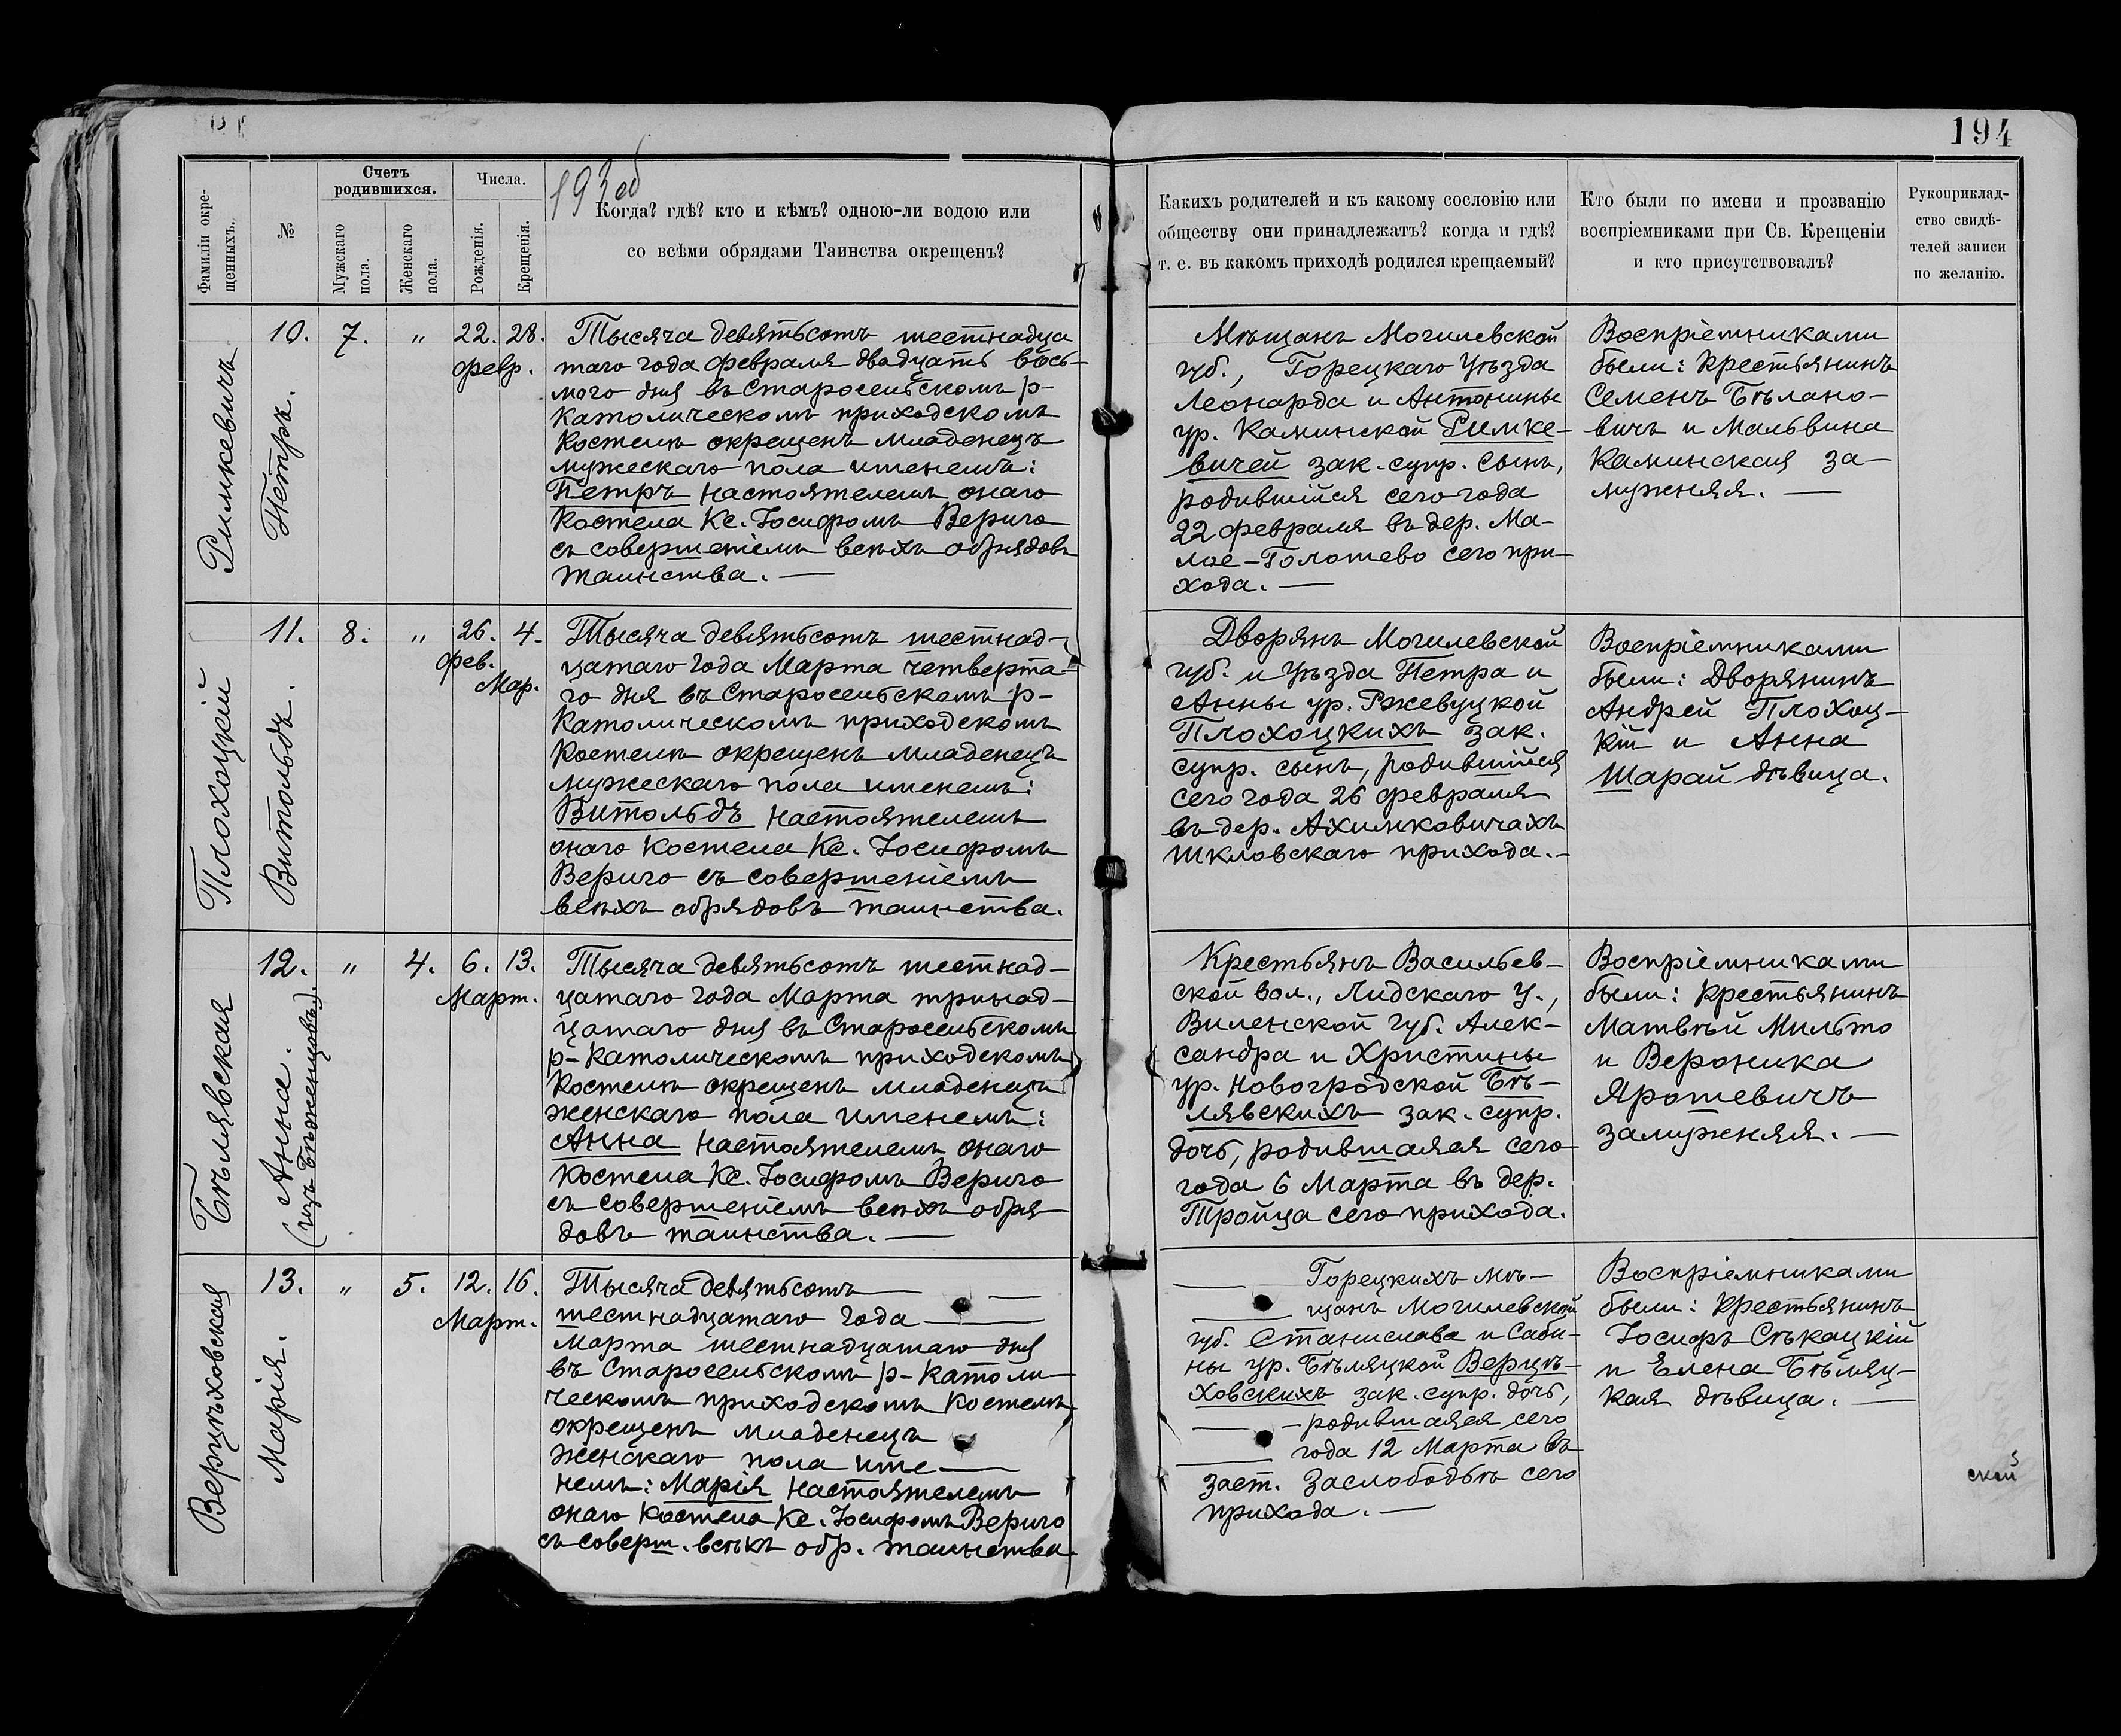 194
193 об
Фамиліи окре-
щенныхъ.
№
Счетъ
родившихся.
Мужскаго
пола.
Женскаго
пола.
Числа.
Рожденія.
Крещенія.
Когда? гдѣ? кто и кѣмъ? одною-ли водою или
со всѣми обрядами Таинства окрещенъ?
Какихъ родителей и къ какому сословію или
обществу они принадлежатъ? когда и гдѣ?
т. е. въ какомъ приходѣ родился крещаемый?
Кто были по имени и прозванію
воспріемниками при Св. Крещеніи
и кто присутствовалъ?
Рукоприклад-
ство свидѣ-
телей записи
по желанію.
Римкевичъ
10.
Петръ.
7.
"
22. 28.
февр.
Тысяча девятьсотъ шестнадца
таго года февраля двадцать вось-
мого дня въ Старосельскомъ р-
католическомъ приходскомъ
костелѣ окрещенъ младенецъ
мужескаго пола именемъ:
Петръ настоятелемъ онаго
костела Кс. Іосифомъ Вериго
съ совершеніемъ всѣхъ обрядовъ
таинства. —
Мѣщанъ Могилевской
губ., Горецкаго Уѣзда
Леонарда и Антонины
ур. Каминской Римке-
вичей зак. супр. сынъ,
родившійся сего года
22 февраля въ дер. Ма-
лое-Голошево сего при-
хода. —
Воспріемниками
были: крестьянинъ
Семенъ Бѣлано-
вичъ и Мальвина
Каминская за-
мужняя. —
Плохоцкій
11.
Витольдъ.
8.
"
26. 4.
фев.
Мар.
Тысяча девятьсотъ шестнад-
цатаго года Марта четверта-
го дня въ Старосельскомъ р-
католическомъ приходскомъ
костелѣ окрещенъ младенецъ
мужескаго пола именемъ:
Витольдъ настоятелемъ
онаго костела Кс. Іосифомъ
Вериго съ совершеніемъ
всѣхъ обрядовъ таинства.
Дворянъ Могилевской
губ. и Уѣзда Петра и
Анны ур. Ржевуцкой
Плохоцкихъ зак.
супр. сынъ, родившійся
сего года 26 февраля
въ дер. Ахимковичахъ
Шкловскаго прихода.-
Воспріемниками
были: Дворянинъ
Андрей Плохоц-
кій и Анна
Шарай дѣвица.
Бѣлявская
12.
Анна.
(изъ бѣженцовъ).
"
4.
6. 13.
Март.
Тысяча девятьсотъ шестнад-
цатаго года Марта тринад-
цатаго дня въ Старосельскомъ
р-католическомъ приходскомъ
костелѣ окрещенъ младенецъ
женскаго пола именемъ:
Анна настоятелемъ онаго
костела Кс. Іосифомъ Вериго
съ совершеніемъ всѣхъ обря
довъ таинства. —
Крестьянъ Васильев-
ской вол., Лидскаго У.,
Виленской губ. Алек-
сандра и Христины
ур. Новогродской Бѣ-
лявскихъ зак. супр.
дочь, родившаяся сего
года 6 Марта въ дер.
Тройца сего прихода.
Воспріемниками
были: крестьянинъ
Матвѣй Мильто
и Вероника
Ярошевичъ
замужняя. —
Верцѣховская
13.
Марія.
"
5.
12. 16.
Март.
Тысяча девятьсотъ —
шестнадцатаго года —
Марта шестнадцатаго дня
въ Старосельскомъ р-католи
ческомъ приходскомъ костелѣ
окрещенъ младенецъ
женскаго пола име—
немъ: Марія настоятелемъ
онаго костела Кс. Іосифомъ Вериго
съ соверш. всѣхъ обр. таинства.
— Горецкихъ мѣ-
— щанъ Могилевской
губ. Станислава и Саби-
ны ур. Бѣляцкой Верцѣ-
ховскихъ зак. супр. дочь,
— родившаяся сего
— года 12 Марта въ
заст. Заслободьѣ сего
прихода. —
Воспріемниками
были: крестьянинъ
Іосифъ Сѣкацкій
и Елена Бѣляц-
кая дѣвица. —
ской